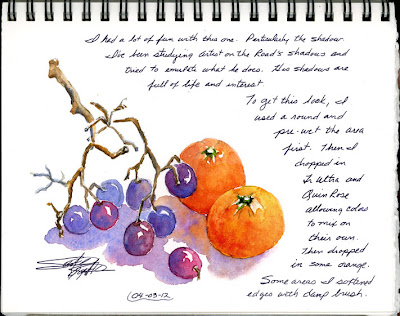 I had a lot of fun with this one. Particularly the shadow.
I've been studying Artist on the Road's shadows and
tried to emulate what he does. His shadows are
full of life and interest.
To get this look, I
used a round and
pre-wet the area
first. Then I
dropped in
Tr Ultra and
Quin Rose
allowing colors
to mix on
their own.
Then dropped
in some orange.
Some areas I softened
edges with damp brush.
04-03-12